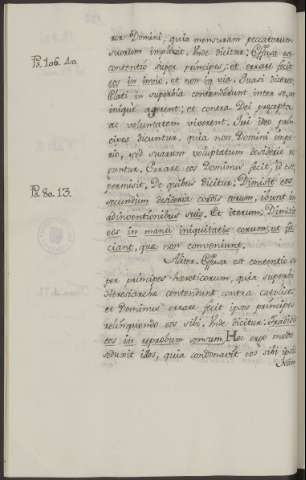 rex Domini, quia mensuram peccatorum
suorum implevit. Unde dicitur: Effusa est
Ps. 106. 40.
contentio super principes, et errare fecit
eos in invio, et non in via. Quasi diceret
Elati in superbia contendebant inter se, et
inique agerent, et contra Dei præcepta
ac voluntatem viverent. Qui ideo prin
cipes dicuntur, quia non Domini impe
rio, sed suarum voluptatum desiderio re
guntur. Errare eos Dominus fecit, id est
permisit. De quibus dicitur: Dimisit eos
Ps. 80. 13.
secundum desideria cordis eorum, ibunt in
adinventionibus suis. Et iterum: Dimisit
eos in manu iniquitatis eorum, ut fa
ciant, quæ non conveniunt.
Aliter. Effusa est contentio su
per principes hæreticorum, quia superbi
Heresiarchæ contendunt contra catholicos
et Dominus errare fecit ipsos principes
relinquendo eos sibi. Unde dicitur: Tradidit
eos in reprobum sensum. Hoc ergo modo
seduxit illos, quia condonavit eos sibi ipsis
Nam